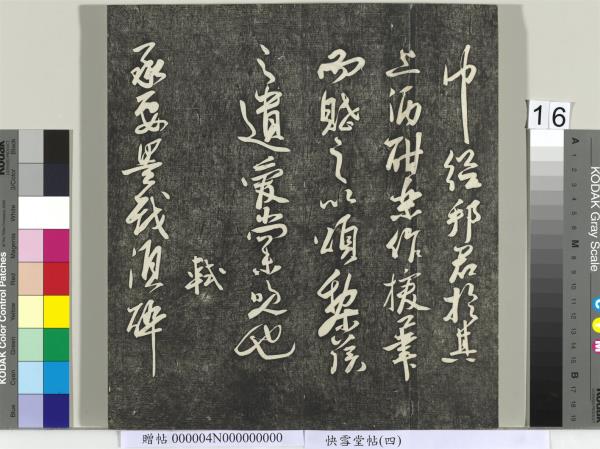 巾從邦君於其
上酒酣樂作援筆
而賦之以頌黎侯
之遺愛尚未晚也
軾
承要墨戲須醉
16
KODAK Color Control Patches
Blue
Cyan
Green
Yellow
Red
Magenta
White
3/Color
Black
KODAK Gray Scale
C Y M
A 1 2 3 4 5 6 M 8 9 10 11 12 13 14 15 B 17 18 19
贈帖 000004N000000000 快雪堂帖(四)